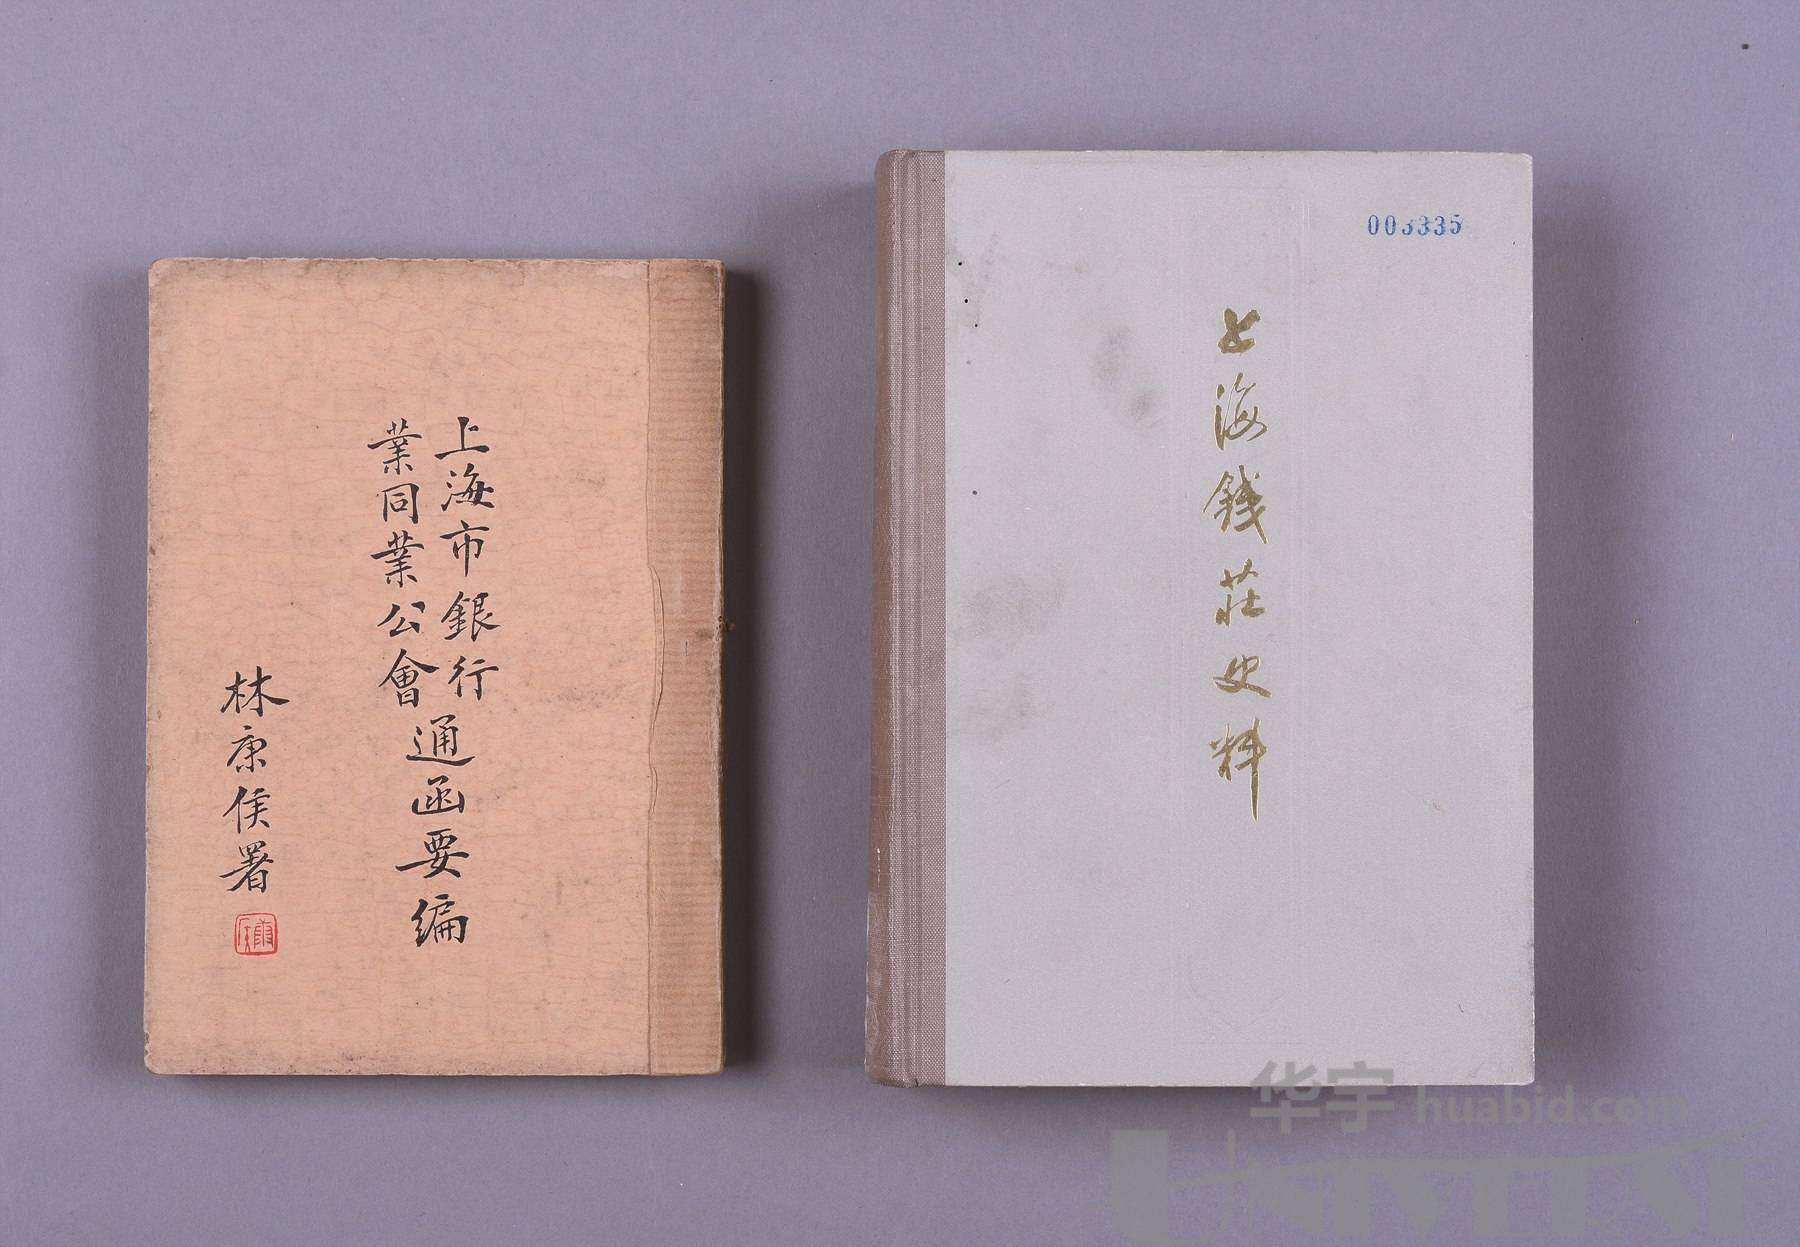 上海市銀行
業同業公會
通函要編
林康侯署
003335
上海錢莊史料
华宇 huabid.com